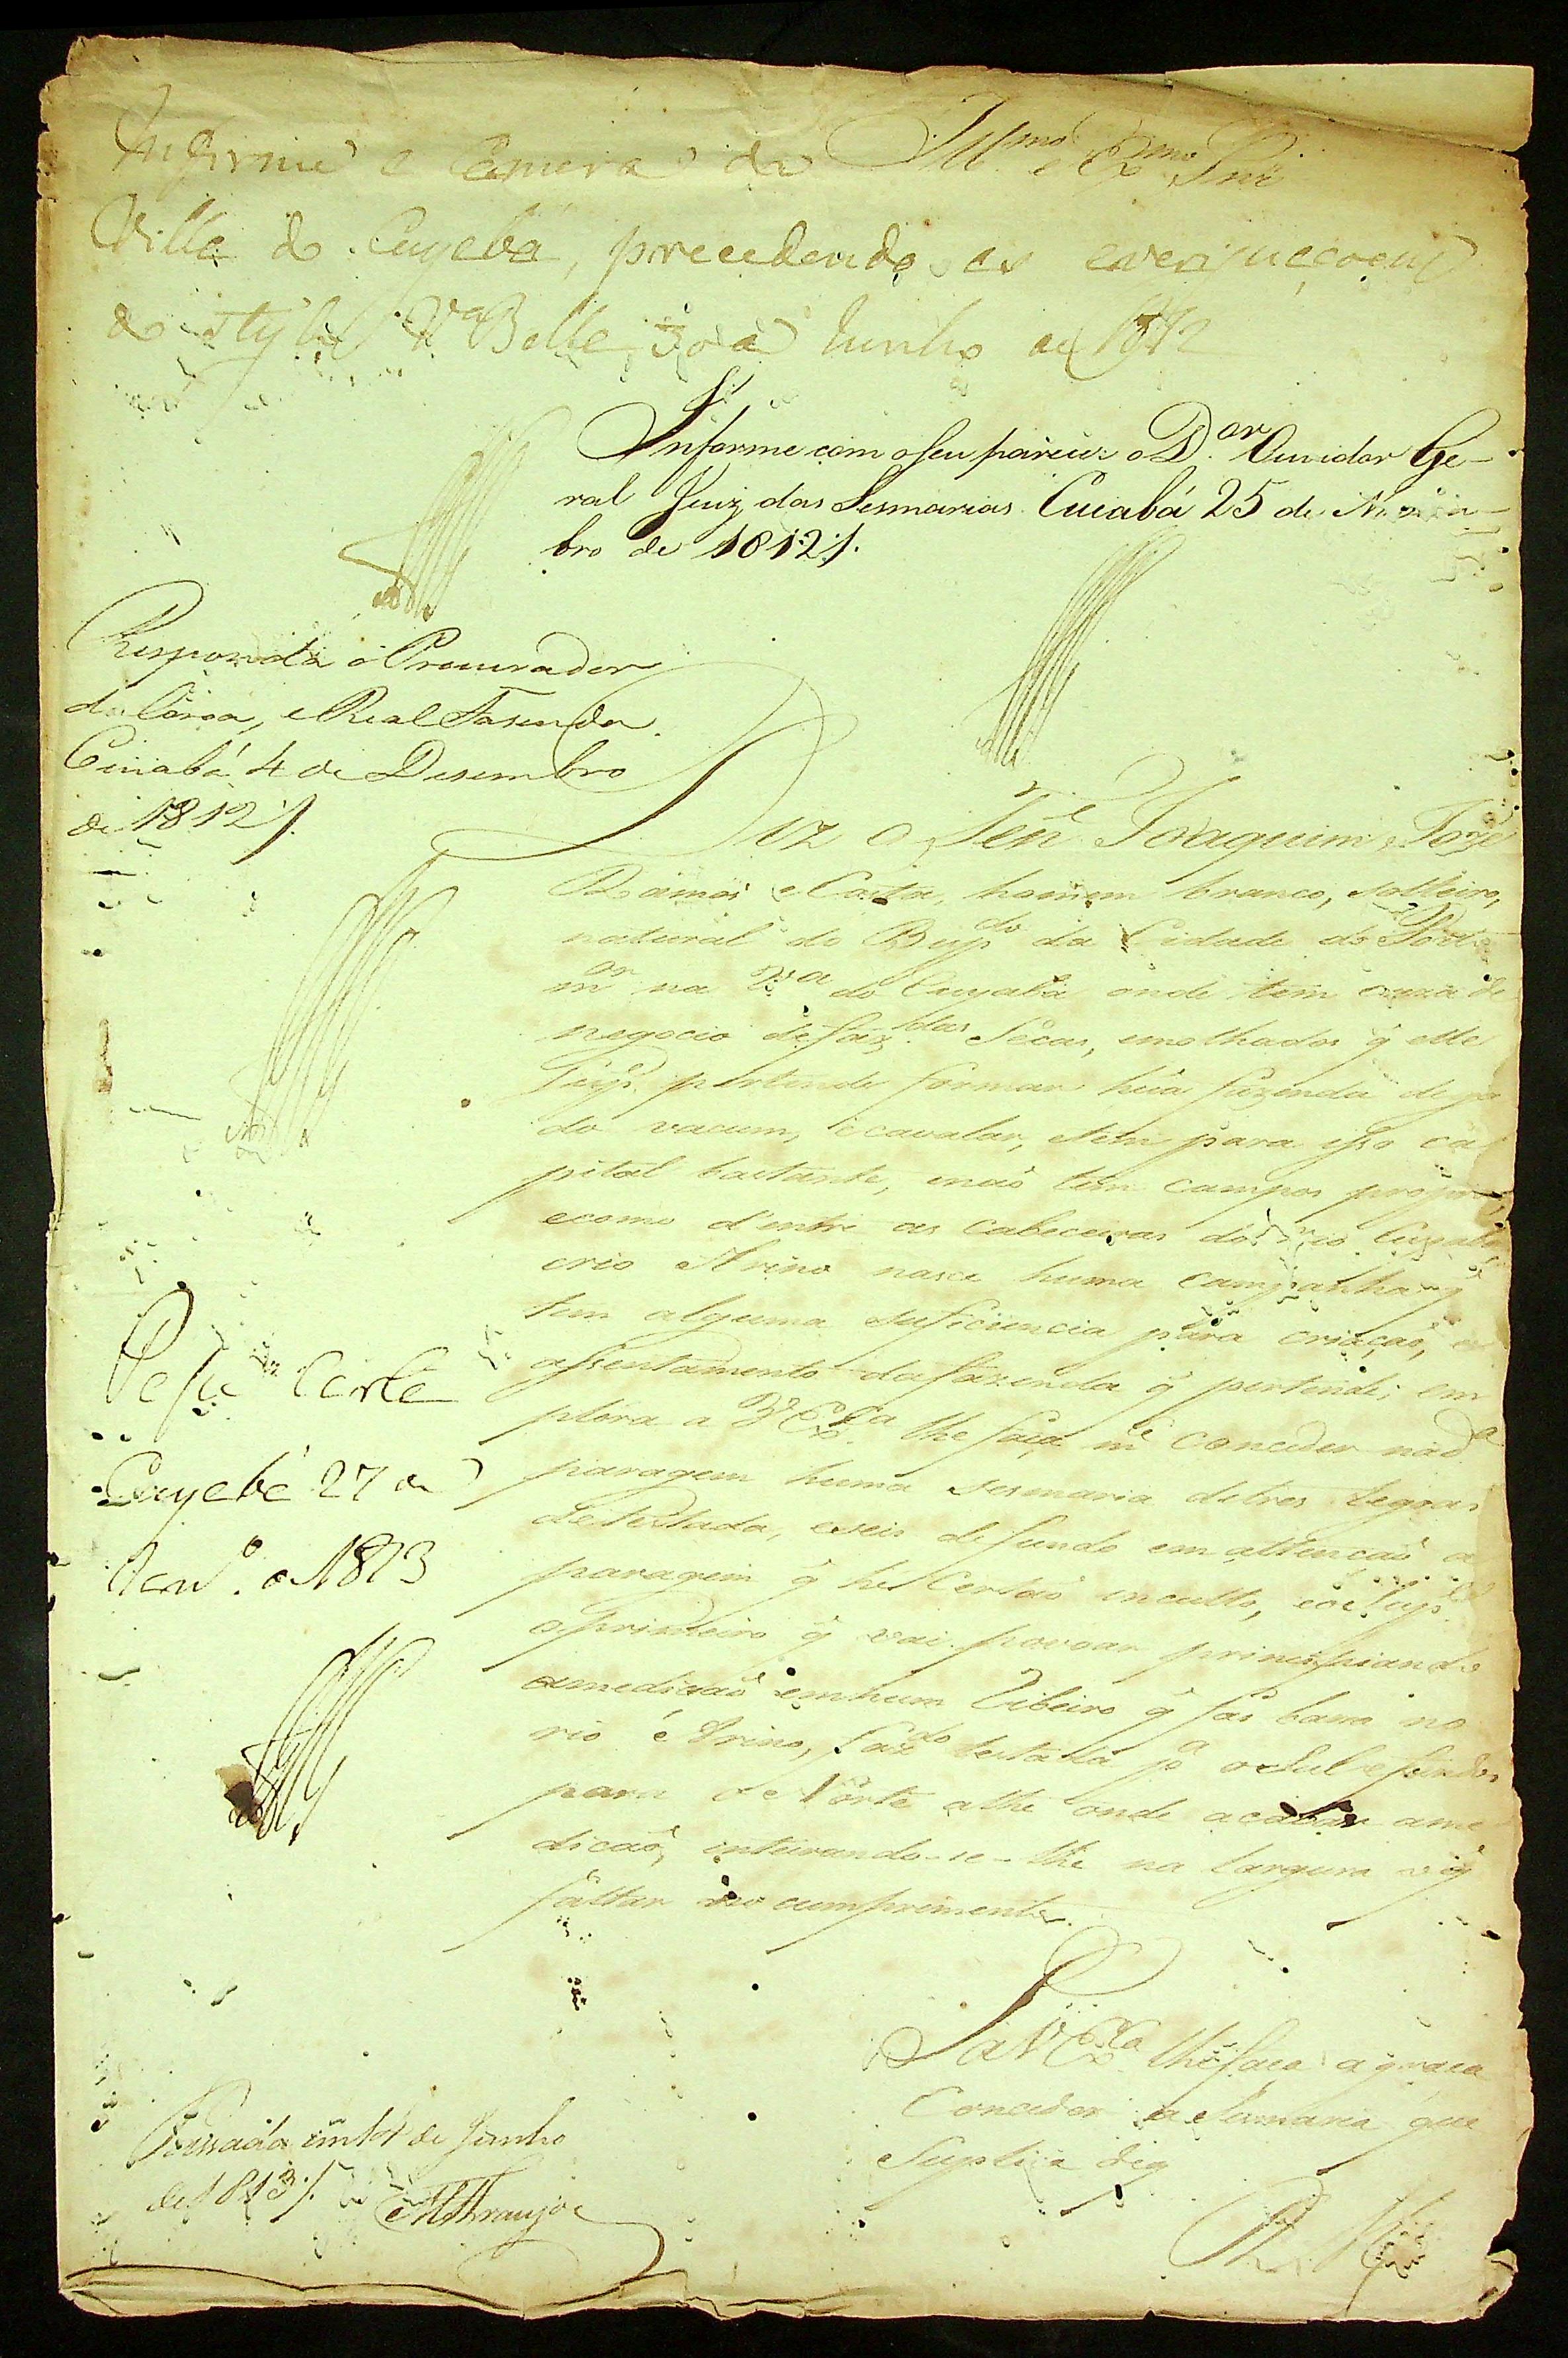 Informe a Camera da Illmo e Exmo Snr
Villa do Cuyabá, precedendo as averiguaçoens
do stylo Va Bella 30 de Junho de 1812
Informe com o seu parecer o Dor Ouvidor Ge-
ral Juiz das Sesmarias. Cuiabá 25 de Novem-
bro de 1812
Responda o Procurador
da Coroa, e Real Fasenda.
Cuiabá 4 de Desembro
de 1812
Diz o Tene Joaquim Joze
Ramos e Costa, homem branco, solteiro,
natural do Bispdo da Cidade do Porto
mor na Va do Cuyabá onde tem caza de
negocio de fazdas Secas, e molhados q elle
Supe pertende formar hũa fazenda de ga
do vacum, e cavalar, e tem para isso ca
pital bastante, e naõ tem campos proprios,
e como d'entre as cabeceiras do rio Cuyabá
e rio Arino nasce huma campanha q
tem alguma suficiencia para criaçaõ, e
assentamento da fazenda q pertende; em
plora a V Exa lhe faça mce conceder na da
paragem huma sesmaria de tres legoas
de testada, e seis de fundo em attencaõ a
paragem q he Certaõ inculto, e o Supe
o primeiro q vai povoar principiando
a medicaõ em hum Ribeiro q fas barra no
rio Arino, fazdo testada pa o Sul e fundos
para o Norte athe onde acabar a me
dicaõ, inteirando-se-lhe na largura o q
faltar no cumprimento.
Passe Carta
Cuyabá 27 de
Janro de 1813
P a V Exa lhe faça a graça
Conceder a Sesmaria que
Suplica
Passada em 14 de Junho
de 1813
Araujo
R Mce